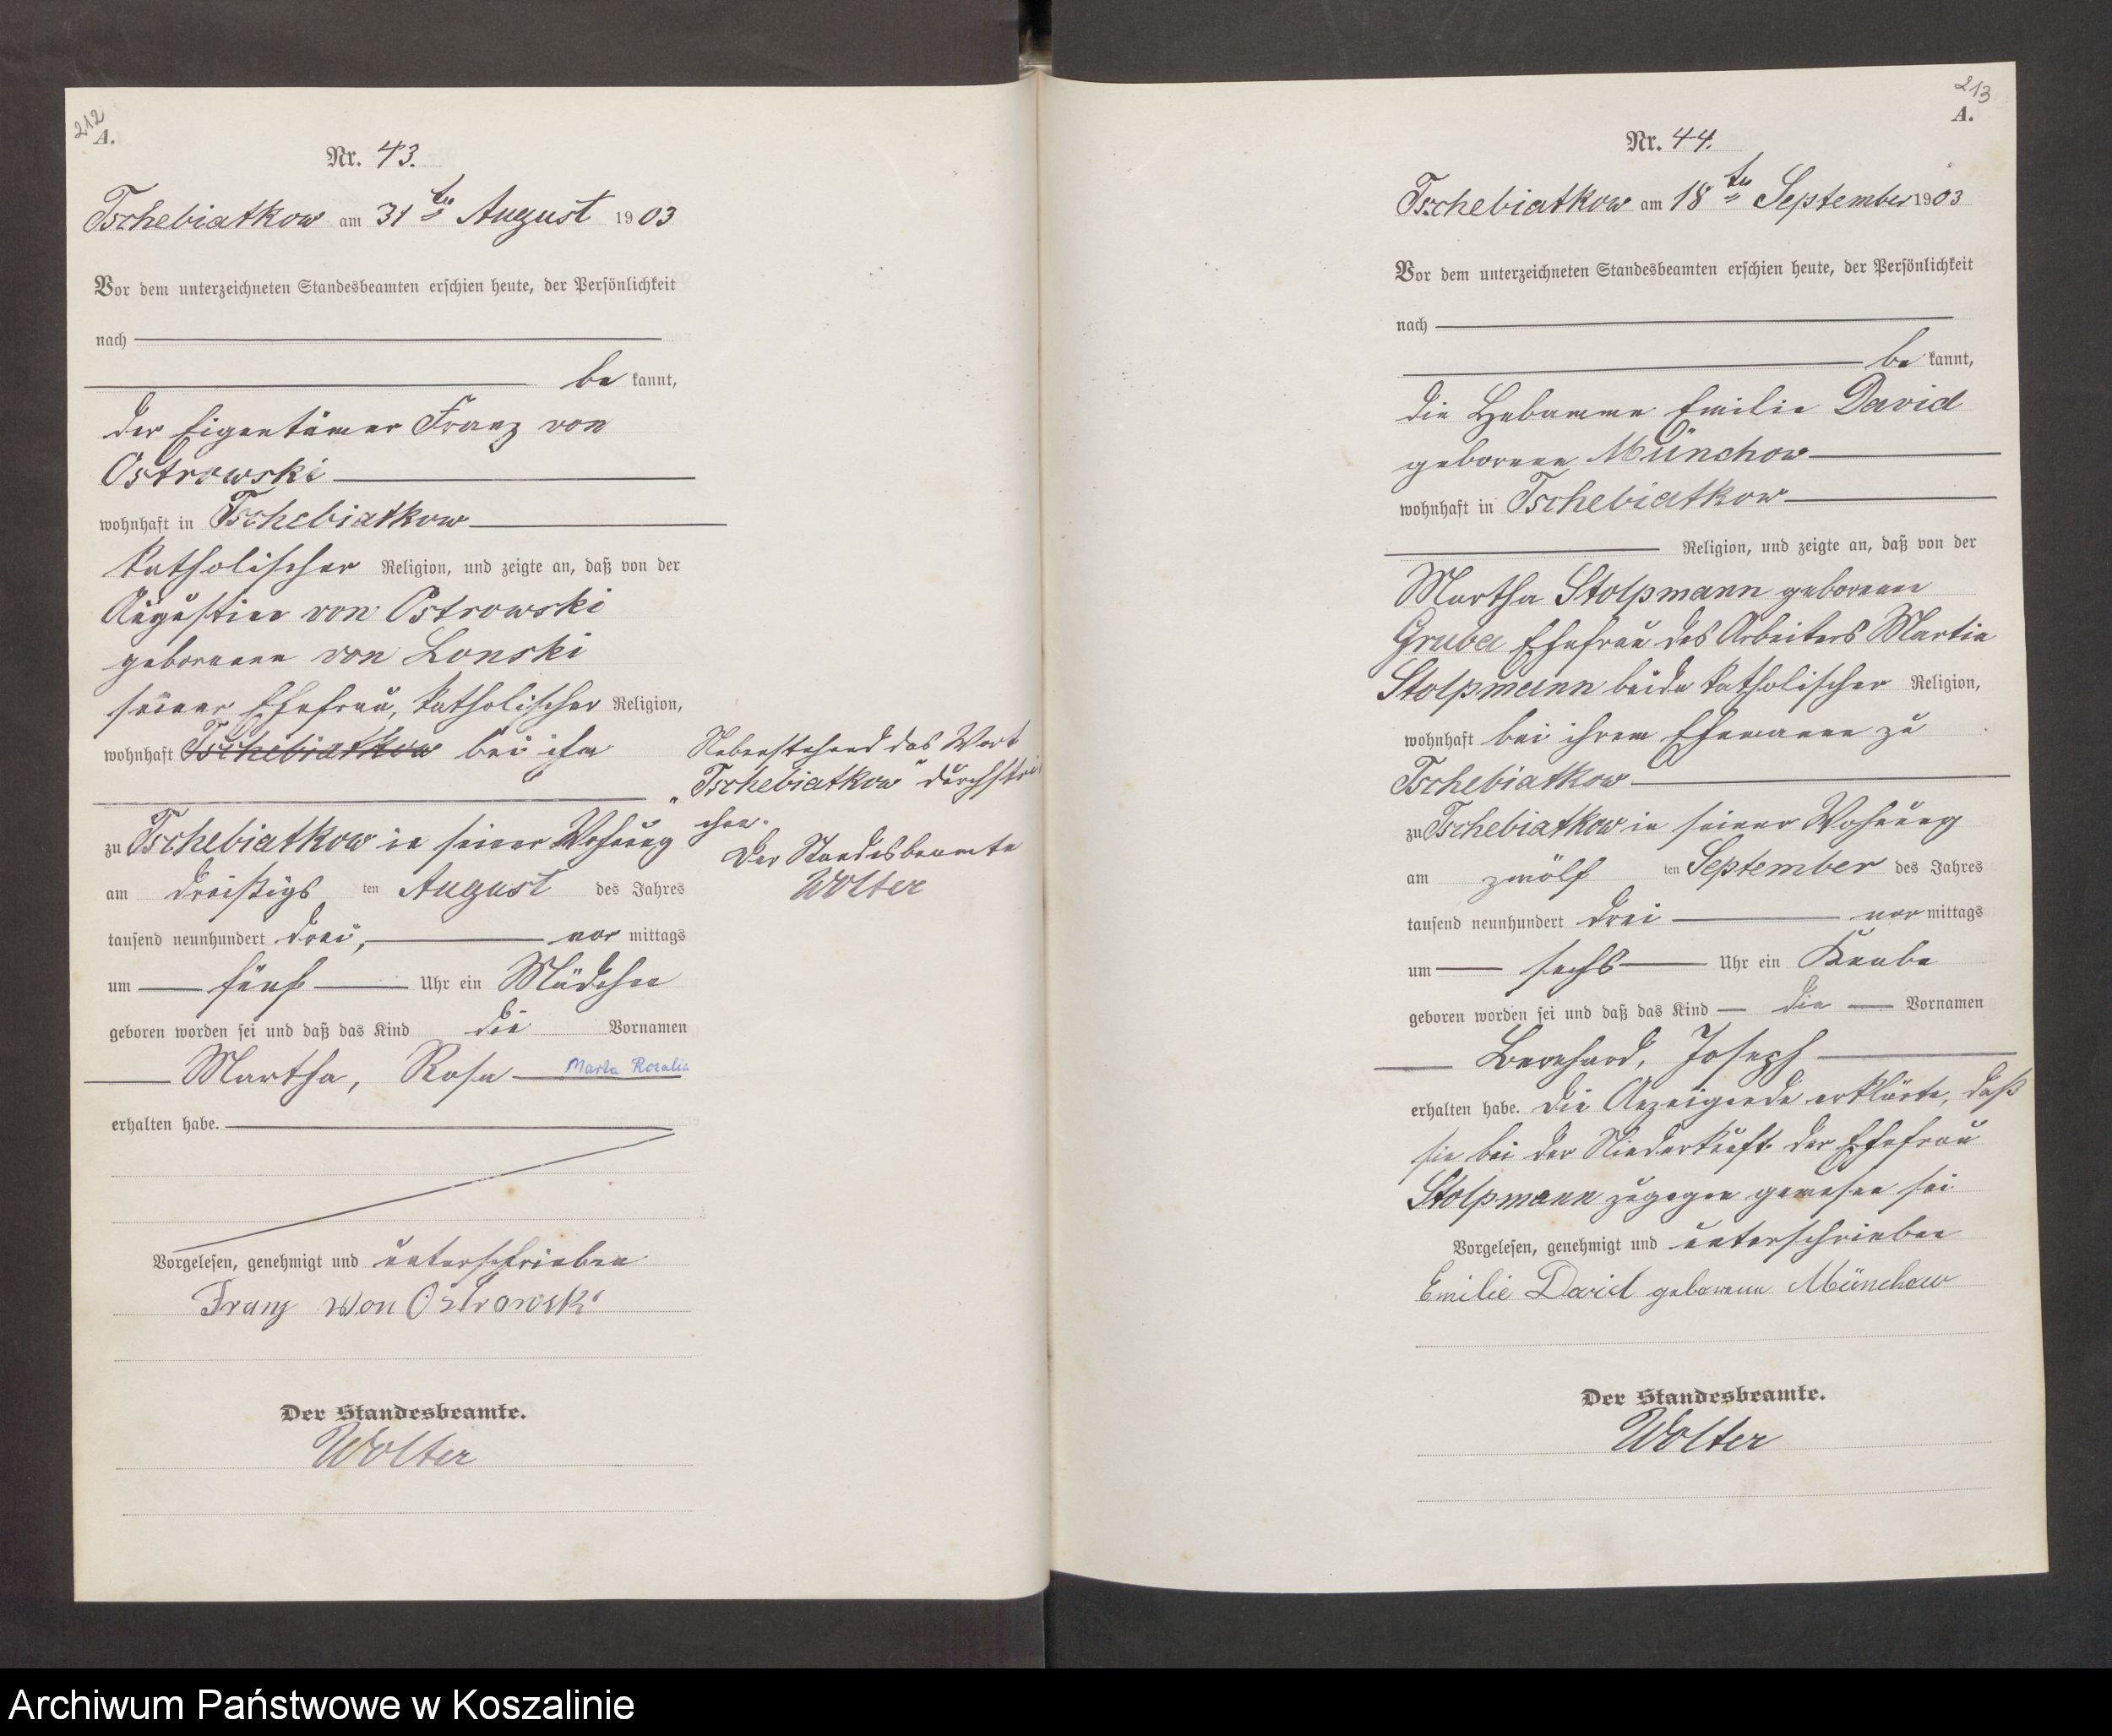 212
A.
Nr. 43.
Tschebiatkow am 31ten August 1903
Vor dem unterzeichneten Standesbeamten erschien heute, der Persönlichkeit
nach
be kannt,
der Eigentümer Franz von
Ostrowski
wohnhaft in Tschebiatkow
katholischer Religion, und zeigte an, daß von der
Augustine von Ostrowski
geborenen von Lonski
seiner Ehefrau, katholischer Religion,
wohnhaft Tschebiatkow bei ihm
zu Tschebiatkow in seiner Wohnung
am dreißigs ten August des Jahres
tausend neunhundert drei, vor mittags
um fünf Uhr ein Mädchen
geboren worden sei und daß das Kind die Vornamen
Martha, Rosa Marta Rozalia
erhalten habe.
Vorgelesen, genehmigt und unterschrieben
Franz von Ostrowski
Der Standesbeamte.
Wolter
Nebenstehend das Wort
„Tschebiatkow" durchstri
chen.
Der Standesbeamte
Wolter
213
A.
Nr. 44.
Tschebiatkow am 18ten September 1903
Vor dem unterzeichneten Standesbeamten erschien heute, der Persönlichkeit
nach
be kannt,
die Hebamme Emilie David
geborene Münchow
wohnhaft in Tschebiatkow
Religion, und zeigte an, daß von der
Martha Stolpmann geborenen
Gruba Ehefrau des Arbeiters Martin
Stolpmann beide katholischer Religion,
wohnhaft bei ihrem Ehemanne zu
Tschebiatkow
zu Tschebiatkow in seiner Wohnung
am zwölf ten September des Jahres
tausend neunhundert drei vor mittags
um sechs Uhr ein Knabe
geboren worden sei und daß das Kind die Vornamen
Bernhard, Joseph
erhalten habe. Die Anzeigende erklärte, daß
sie bei der Niederkunft der Ehefrau
Stolpmann zugegen gewesen sei
Vorgelesen, genehmigt und unterschrieben
Emilie David geborene Münchow
Der Standesbeamte.
Wolter
Archiwum Państwowe w Koszalinie